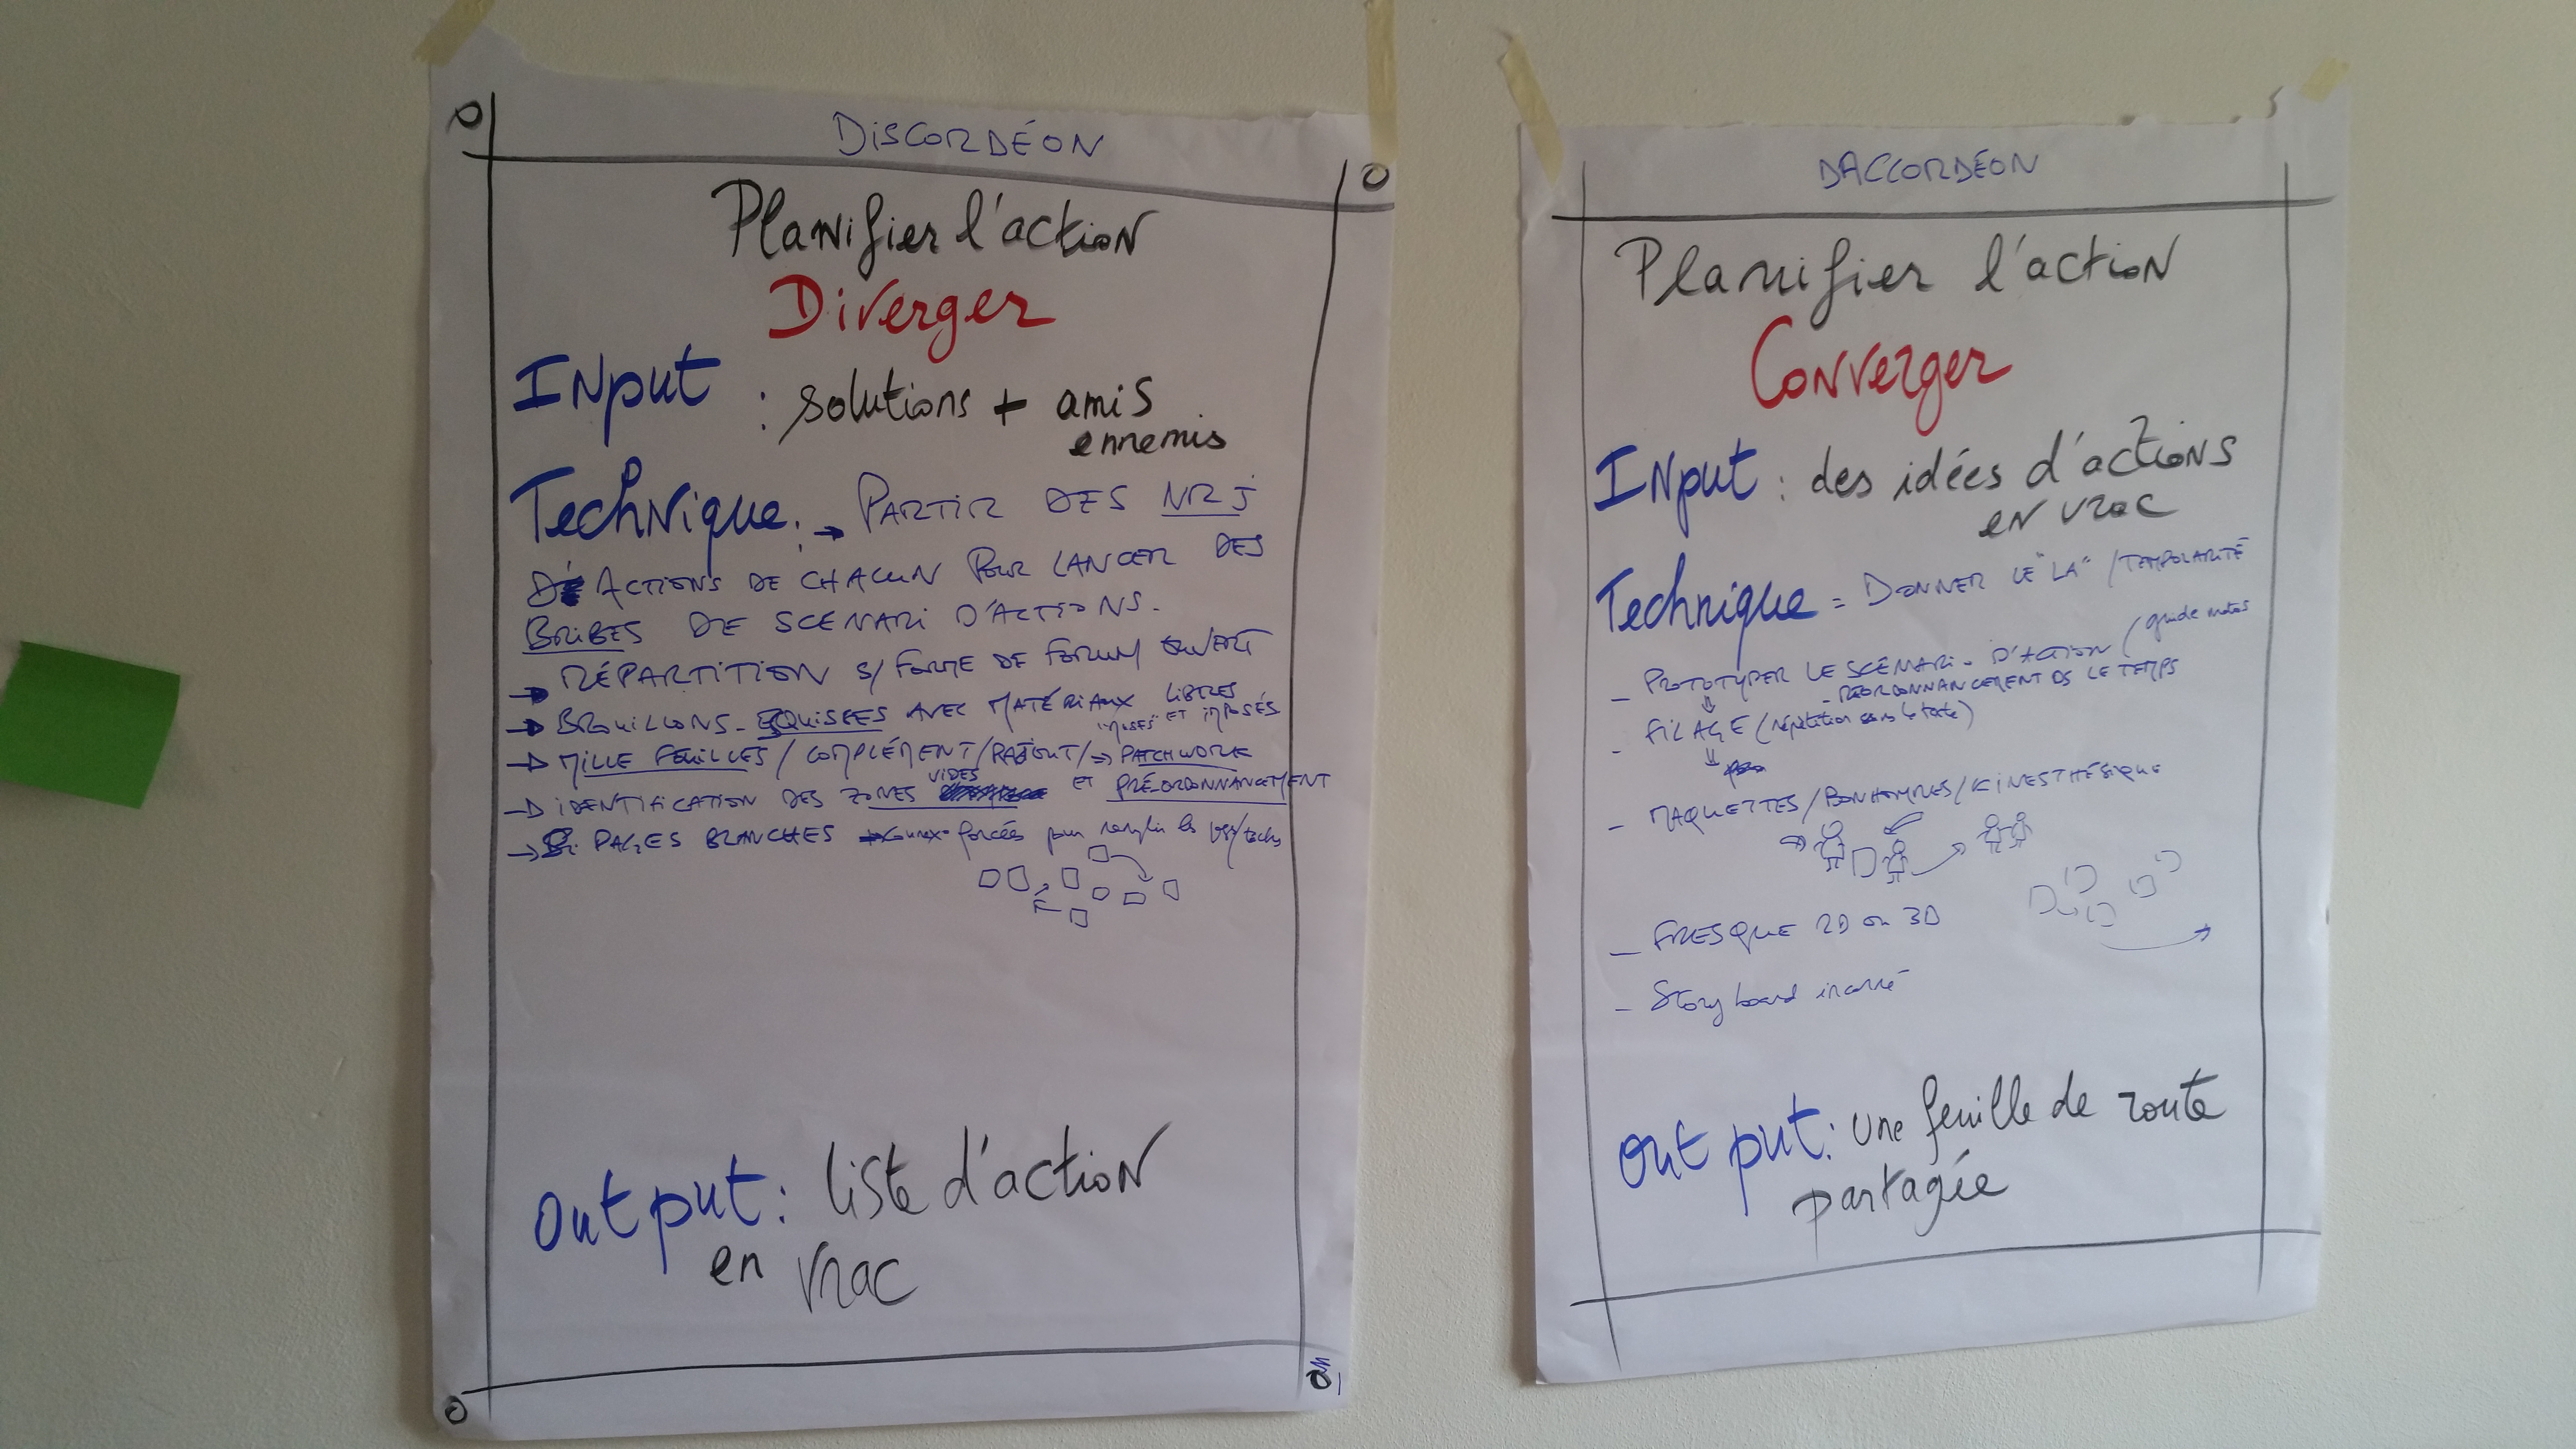 DISCORDÉON
Planifier l'action
Diverger
INput : solutions + amis
ennemis
Technique : → PARTIR DES NRJ
D' ACTIONS DE CHACUN POUR LANCER DES
BRIBES DE SCENARI D'ACTIONS.
→ RÉPARTITION S/ FORME DE FORUM OUVERT
→ BROUILLONS - ESQUISSES AVEC MATÉRIAUX LIBRES
ET IMPOSÉS
→ MILLE FEUILLES / COMPLÉMENT / RAJOUT / ⇒ PATCHWORK
VIDES
→ IDENTIFICATION DES ZONES ET PRÉ-ORDONNANCEMENT
→ PAGES BLANCHES forcés pour remplir les
Output : liste d'action
en vrac
DACCORDÉON
Planifier l'action
Converger
INput : des idées d'actions
en vrac
Technique = DONNER LE "LA" / TEMPORALITÉ
- PROTOTYPER LE SCÉNARI - D'ACTION (guide
- RÉORDONNANCEMENT DS LE TEMPS
- FILAGE (répétition sans le texte)
- MAQUETTES / BONHOMMES / KINESTHÉSIQUE
- FRESQUE 2D ou 3D
- Story board incarné
Output : une feuille de route
partagée